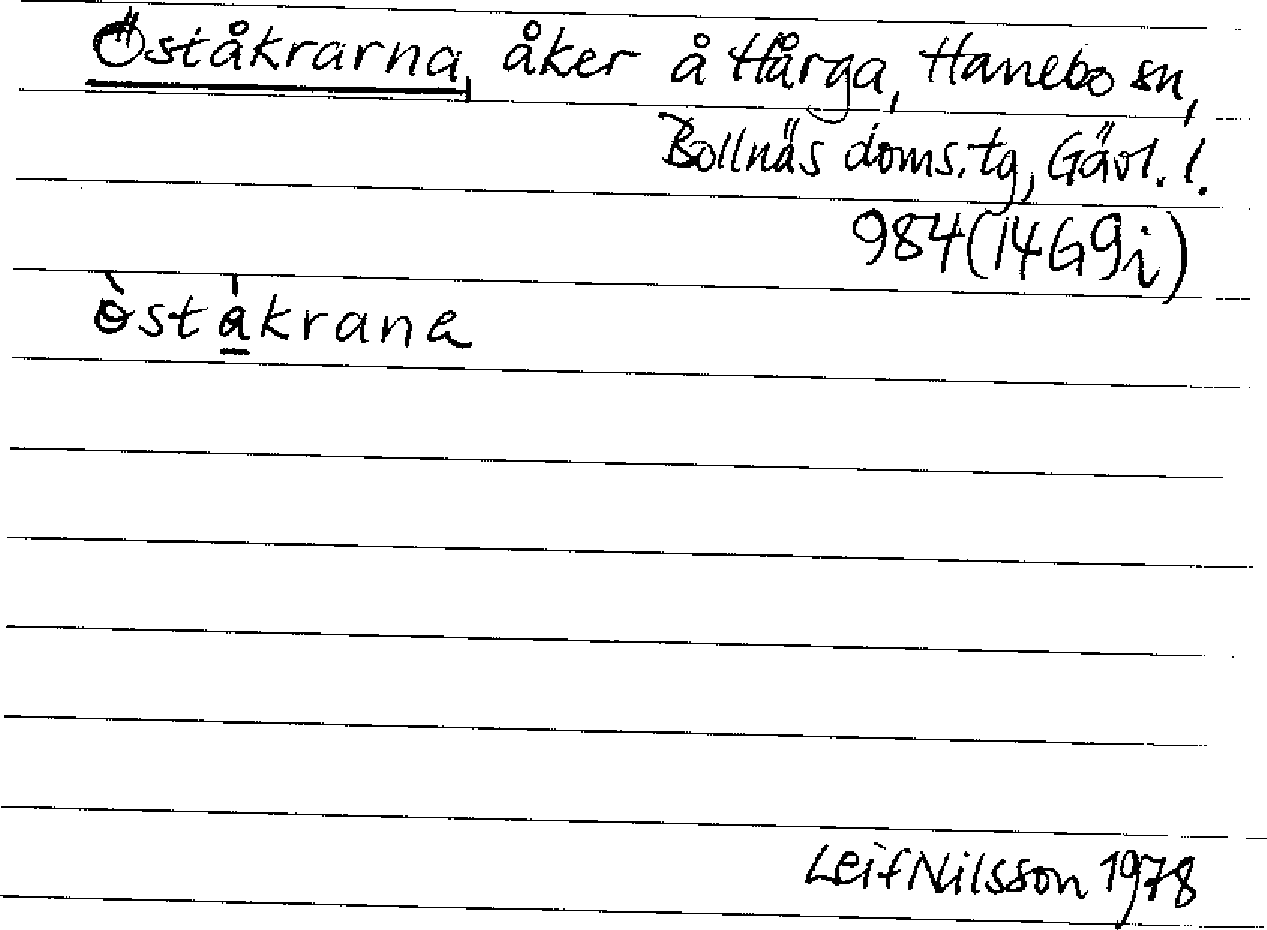 Öståkrarna, åker å Hårga, Hanebo sn,
Bollnäs doms.tg, Gävl. l.
984 (14G9i)
ɵ̀sta̱̍krana
Leif Nilsson 1978